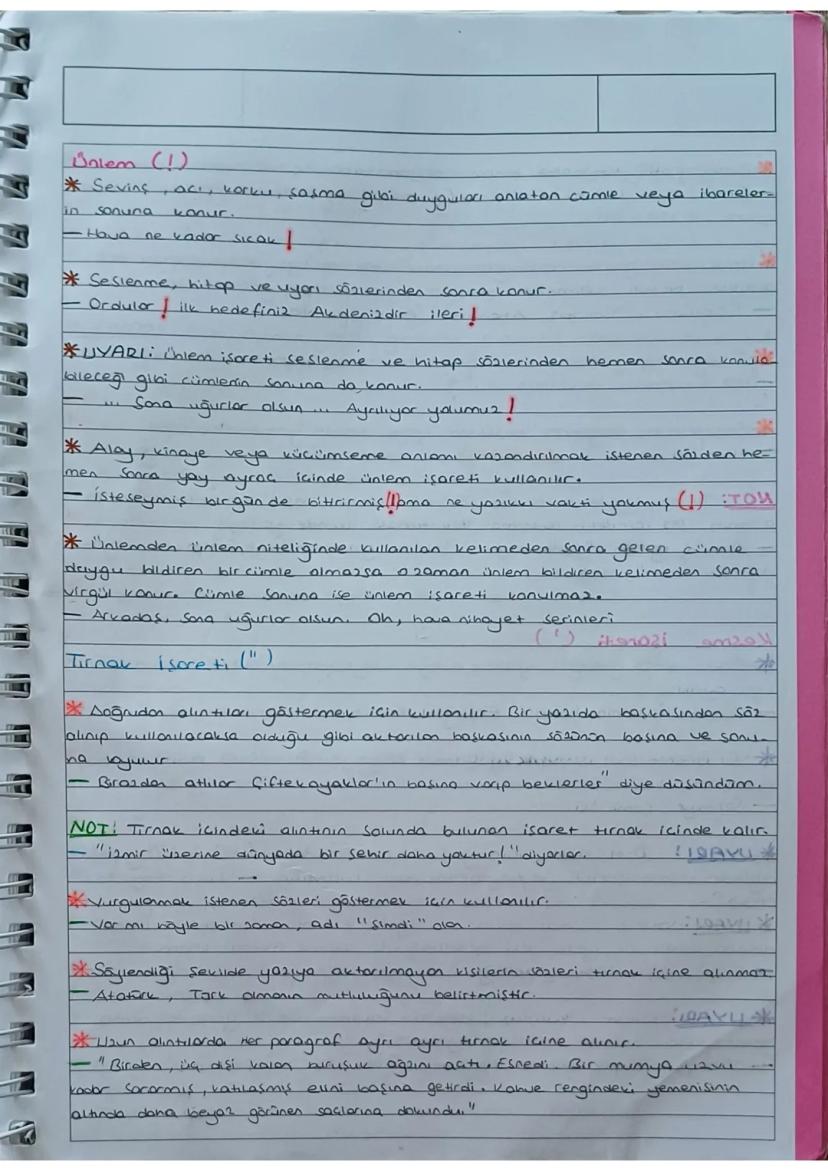 Ünlem (!)
* Sevinç, acı, korku, şaşma gibi duyguları anlatan cümle veya ibareler-
in sonuna konur.
— Hava ne kadar sıcak!
* Seslenme, hitap ve uyarı sözlerinden sonra konur.
— Ordular! ilk hedefiniz Akdenizdir ileri!
* UYARI: Ünlem işareti seslenme ve hitap sözlerinden hemen sonra konula
bileceği gibi cümlenin sonuna da konur.
— ... Sana uğurlar olsun ... Ayrılıyor yolumuz!
* Alay, kinaye veya küçümseme anlamı kazandırılmak istenen sözden he-
men sonra yay ayraç içinde ünlem işareti kullanılır.
— İsteseymiş bir günde bitirirmiş(!)ama ne yazıkki vakti yokmuş (!)
* Ünlemden ünlem niteliğinde kullanılan kelimeden sonra gelen cümle
duygu bildiren bir cümle olmazsa o zaman ünlem bildiren kelimeden sonra
virgül konur. Cümle sonuna ise ünlem işareti konulmaz.
— Arkadaş, sana uğurlar olsun. Oh, hava nihayet serinleri
Tırnak İşareti (")
* Doğrudan alıntıları göstermek için kullanılır. Bir yazıda başkasından söz
alınıp kullanılacaksa olduğu gibi aktarılan başkasının sözünün başına ve sonu-
na koyulur.
— Birazdan atlılar Çiftekayaklar'ın başına varıp beklerler" diye düşündüm.
NOT: Tırnak içindeki alıntının solunda bulunan işaret tırnak içinde kalır.
— "İzmir üzerine dünyada bir şehir daha yoktur!" diyorlar.
* Vurgulanmak istenen sözleri göstermek için kullanılır.
— Var mı böyle bir zaman, adı "şimdi" olan.
* Söylendiği şekilde yazıya aktarılmayan kişilerin sözleri tırnak içine alınmaz
— Atatürk, Türk olmanın mutluluğunu belirtmiştir.
* Uzun alıntılarda Her paragraf ayrı ayrı tırnak içine alınır.
— "Birden, üç dişi kalan buruşuk ağzını açtı. Esnedi. Bir mumya uzvu
kadar sararmış, katılaşmış elini başına getirdi. Kahve rengindeki yemenisinin
altında daha beyaz görünen saçlarına dokundu."